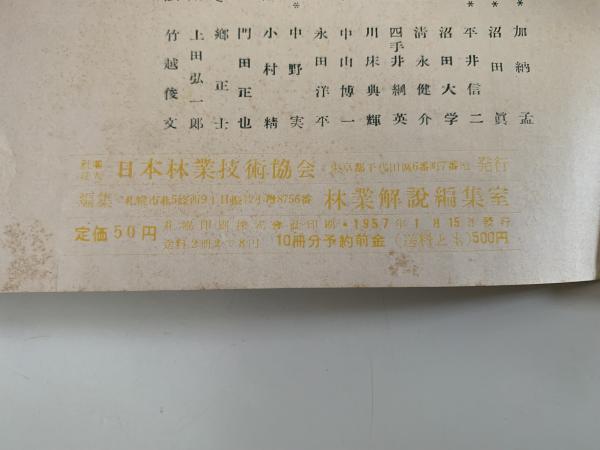 加納 孟
沼田 眞
平井信二
沼田大学
清永健介
四手井綱英
川床典輝
中山博一
永田洋平
中野 実
小村 精
門田正也
郷 正士
上田弘一郎
竹越俊文
社団法人 日本林業技術協会・東京都千代田区6番町7番地 発行
編集 札幌市北5條西9丁目 振替小樽8756番 林業解説編集室
定価50円 札幌印刷株式会社印刷・1957年1月15日発行
送料2冊まで8円 10冊分予約前金(送料とも)500円